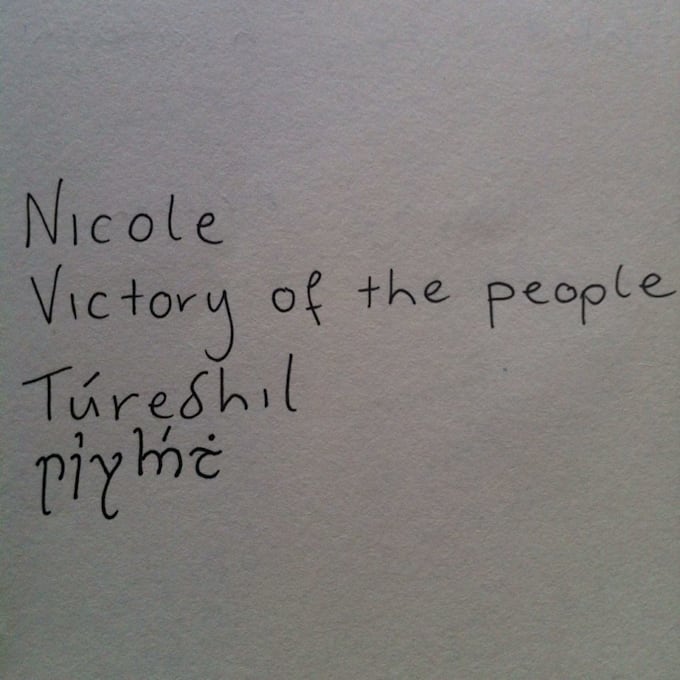 Nicole
Victory of the people
Túreδhil